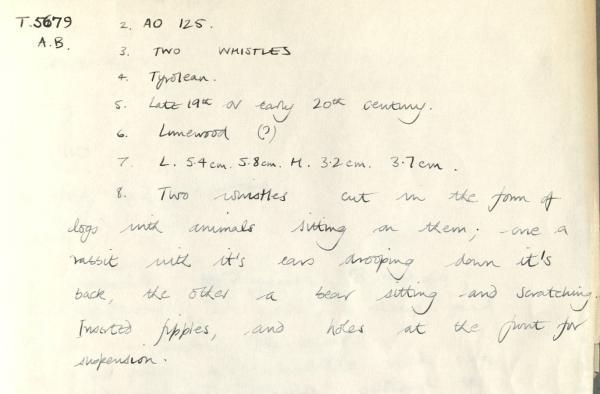 T.5679 2. AO 125.
A.B.
3. TWO WHISTLES
4. Tyrolean.
5. Late 19th or early 20th century.
6. Limewood (?)
7. L. 5.4cm. 5.8cm. H. 3.2cm. 3.7cm.
8. Two whistles cut in the form of
logs with animals sitting on them; one a
rabbit with it's ears drooping down it's
back, the other a bear sitting and scratching.
Inserted fipples, and holes at the front for
suspension.